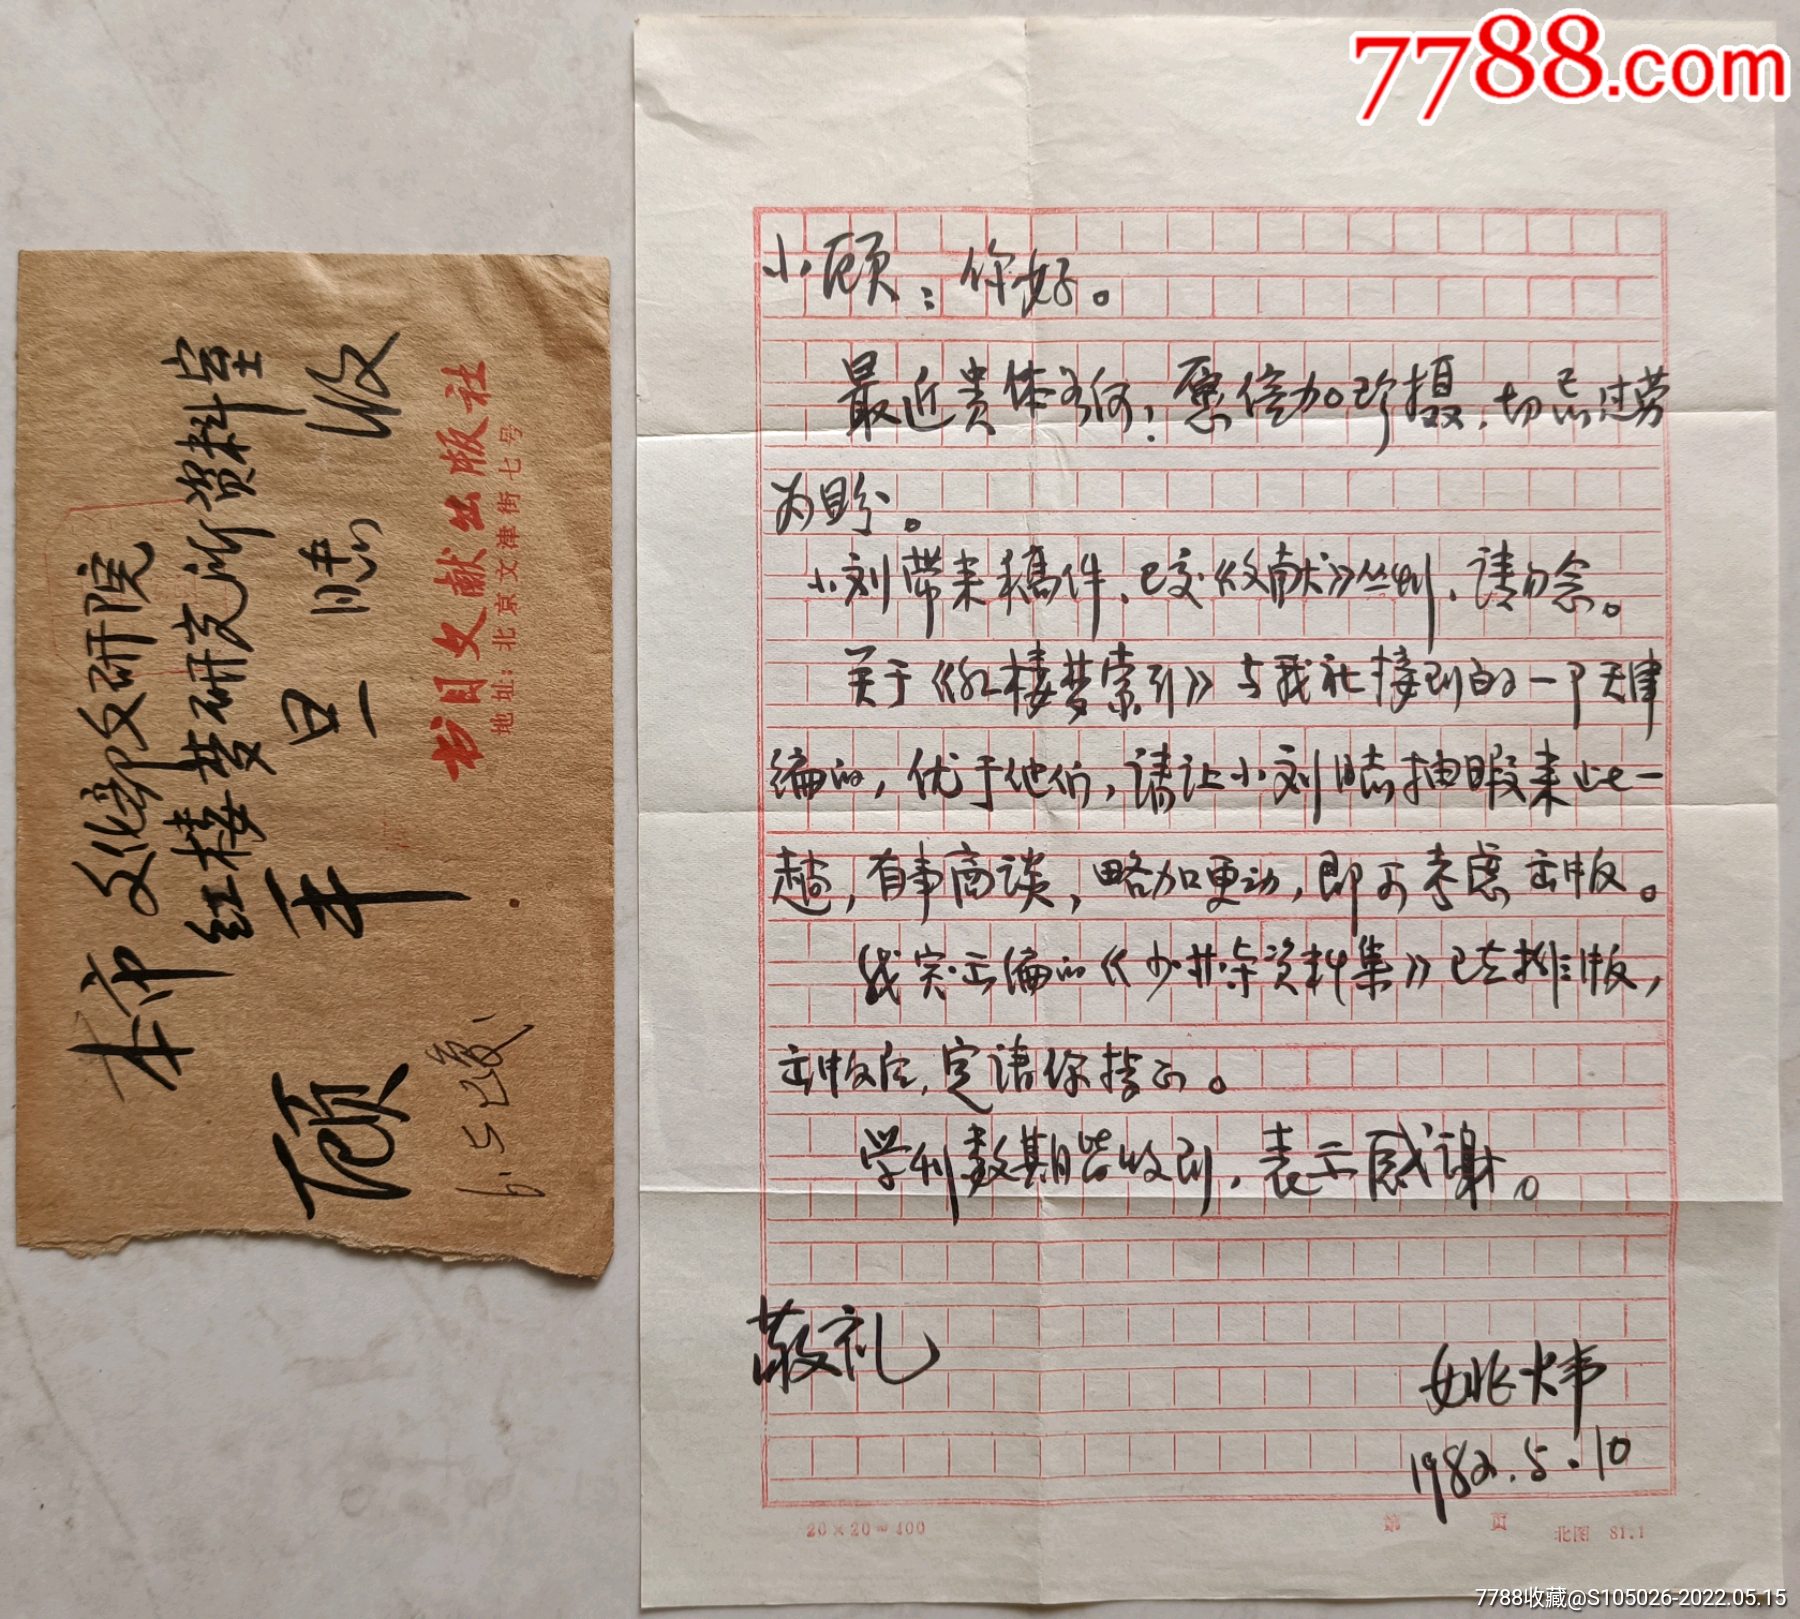 7788.com
本市 文化部文研院
红楼梦研究所资料室
顾平旦 收
书目文献出版社
地址：北京文津街七号
小顾：你好。
最近贵体如何？愿倍加珍摄，切忌过劳
为盼。
小刘带来稿件，已交《文献》丛刊，请勿念。
关于《红楼梦索引》与我社接到的一个天津
编的，优于他们，请让小刘同志抽暇来此一
趟，有事商谈，略加更动，即可考虑出版。
我室正编的《资料集》已去排版，
出版后，定请你指正。
学刊数期皆收到，表示感谢。
敬礼
姚炜
1982.5.10
20×20=400
第 页
北图 81.1
7788收藏@S105026-2022.05.15